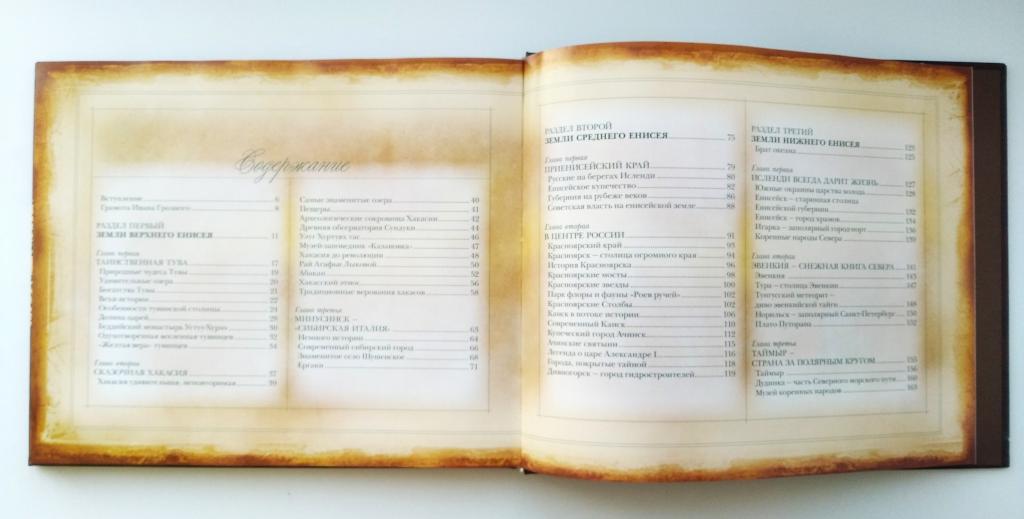 Содержание
Вступление 6
Грамота Ивана Грозного 8
РАЗДЕЛ ПЕРВЫЙ
ЗЕМЛИ ВЕРХНЕГО ЕНИСЕЯ 11
Глава первая
ТАИНСТВЕННАЯ ТУВА 17
Природные чудеса Тувы 19
Удивительные озера 20
Богатства Тувы 21
Вехи истории 22
Особенности тувинской столицы 24
Долина царей 29
Буддийский монастырь Устуу-Хурээ 30
Одухотворенная вселенная тувинцев 32
«Желтая вера» тувинцев 34
Глава вторая
СКАЗОЧНАЯ ХАКАСИЯ 37
Хакасия удивительная, неповторимая 39
Самые знаменитые озера 40
Пещеры 41
Археологические сокровища Хакасии 42
Древняя обсерватория Сундуки 44
Улуг Хуртуях тас 46
Музей-заповедник «Казановка» 47
Хакасия до революции 48
Рай Агафьи Лыковой 50
Абакан 52
Хакасский этнос 56
Традиционные верования хакасов 58
Глава третья
МИНУСИНСК –
«СИБИРСКАЯ ИТАЛИЯ» 63
Немного истории 64
Современный сибирский город 66
Знаменитое село Шушенское 68
Ергаки 71
РАЗДЕЛ ВТОРОЙ
ЗЕМЛИ СРЕДНЕГО ЕНИСЕЯ 75
Глава первая
ПРИЕНИСЕЙСКИЙ КРАЙ 79
Русские на берегах Исленди 80
Енисейское купечество 82
Губерния на рубеже веков 86
Советская власть на енисейской земле 88
Глава вторая
В ЦЕНТРЕ РОССИИ 91
Красноярский край 93
Красноярск – столица огромного края 94
История Красноярска 96
Красноярские мосты 98
Красноярские звезды 100
Парк флоры и фауны «Роев ручей» 102
Красноярские Столбы 102
Канск в потоке истории 106
Современный Канск 110
Купеческий город Ачинск 112
Ачинские святыни 115
Легенда о царе Александре I 116
Города, покрытые тайной 118
Дивногорск – город гидростроителей 119
РАЗДЕЛ ТРЕТИЙ
ЗЕМЛИ НИЖНЕГО ЕНИСЕЯ 123
Брат океана 125
Глава первая
ИСЛЕНДИ ВСЕГДА ДАРИТ ЖИЗНЬ 127
Южные окраины царства холода 128
Енисейск – старинная столица
Енисейской губернии 132
Енисейск – город храмов 134
Игарка – заполярный город-порт 136
Коренные народы Севера 139
Глава вторая
ЭВЕНКИЯ – СНЕЖНАЯ КНИГА СЕВЕРА 141
Эвенкия 143
Тура – столица Эвенкии 147
Тунгусский метеорит –
диво эвенкийской тайги 148
Норильск – заполярный Санкт-Петербург 150
Плато Путорана 152
Глава третья
ТАЙМЫР –
СТРАНА ЗА ПОЛЯРНЫМ КРУГОМ 155
Таймыр 156
Дудинка – часть Северного морского пути 160
Музей коренных народов 163